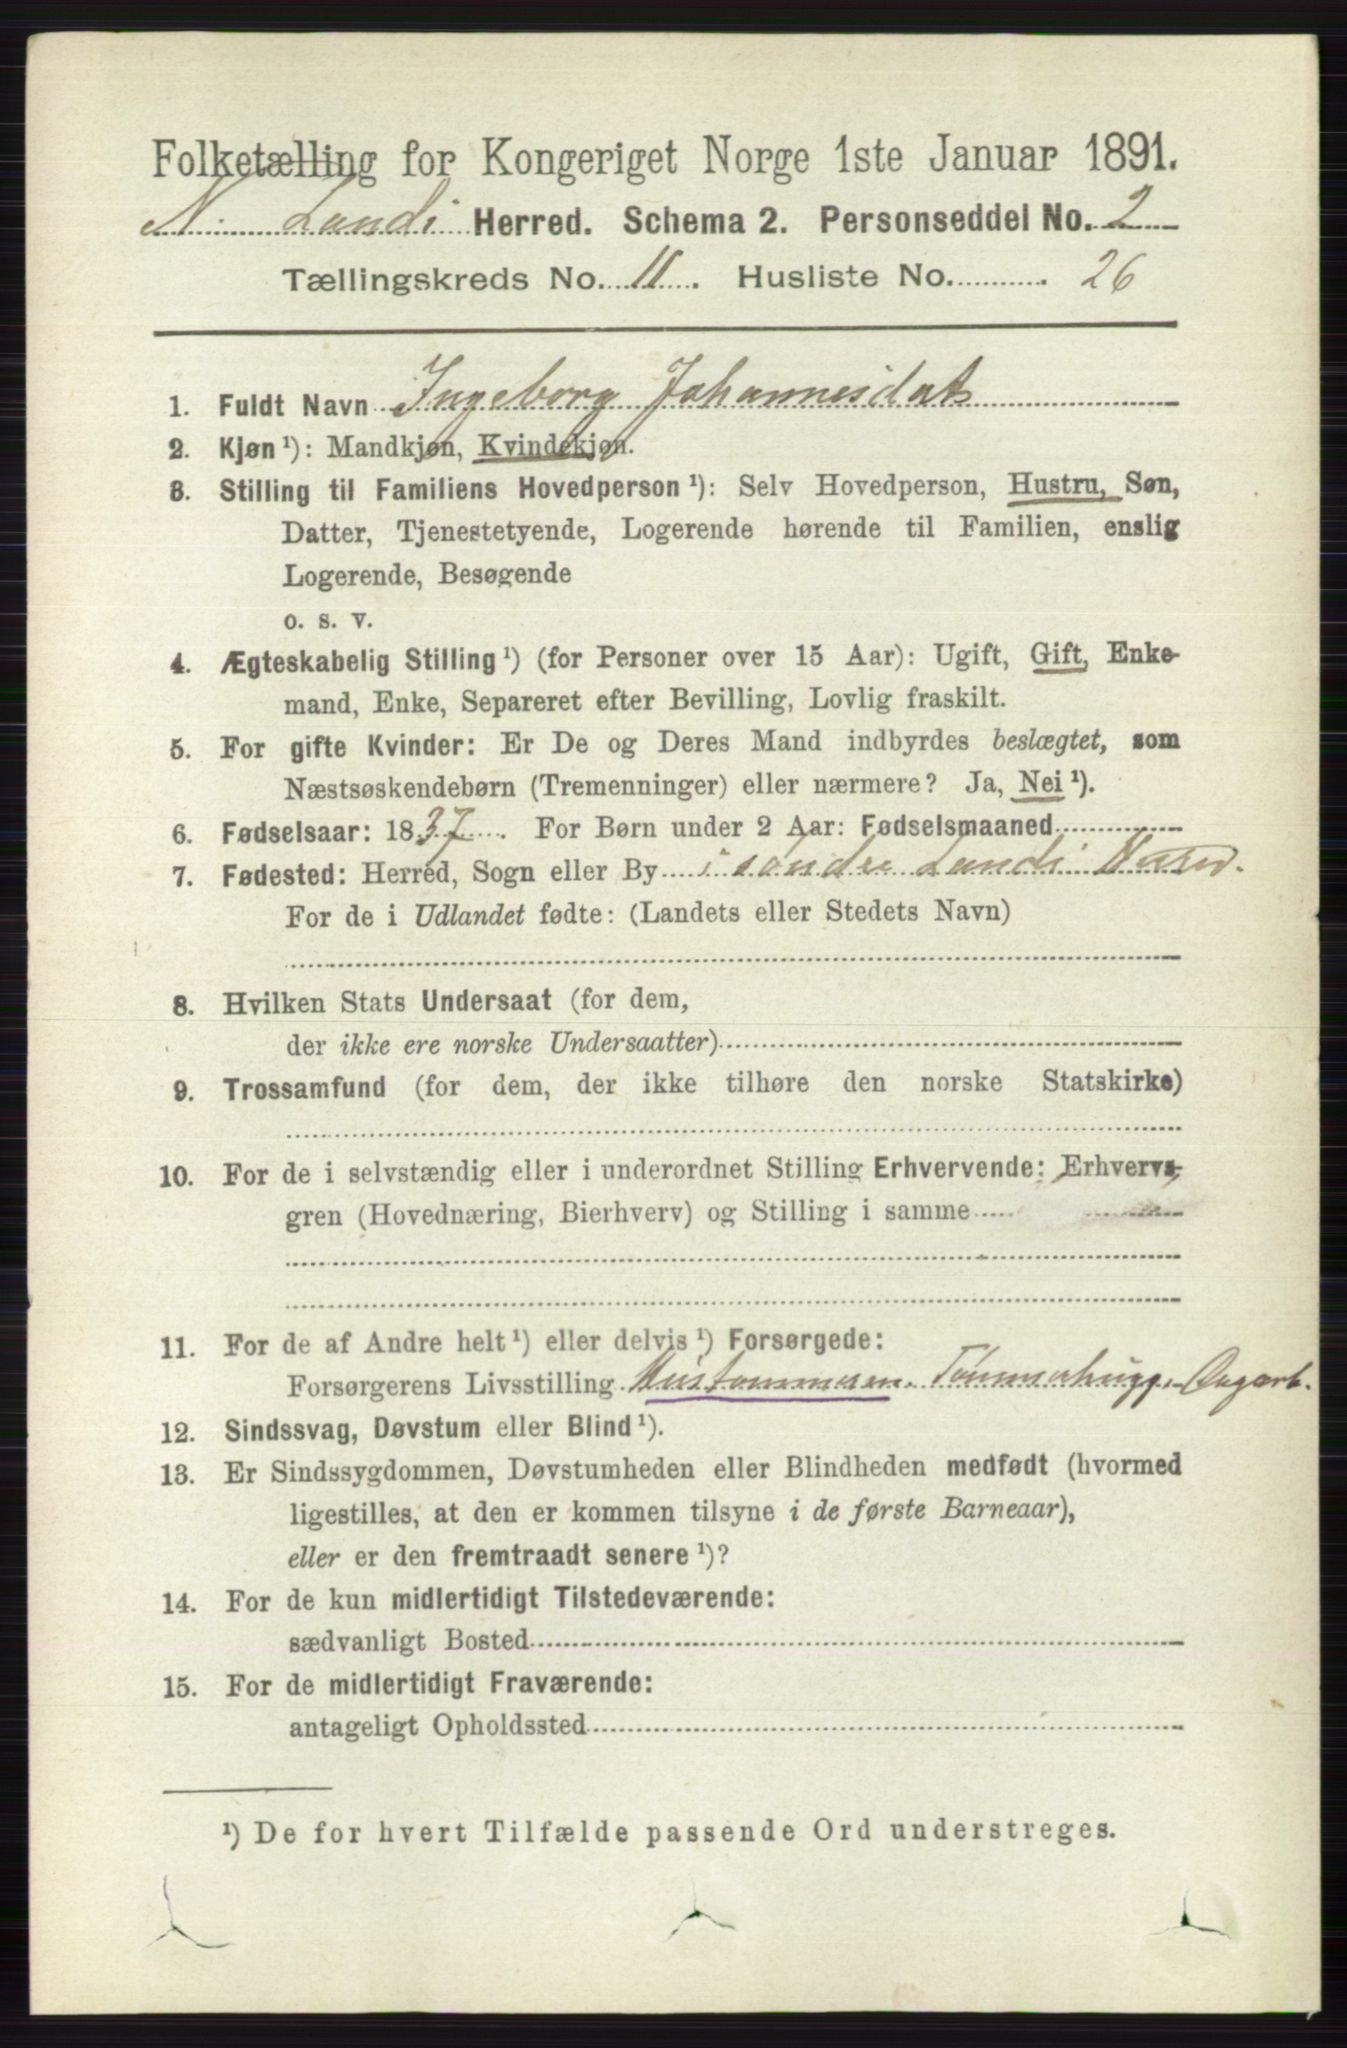 Folketælling for Kongeriget Norge 1ste Januar 1891.
N. Landi Herred. Schema 2. Personseddel No. 2
Tællingskreds No. 11. Husliste No. 26
1. Fuldt Navn Ingeborg Johannesdat
2. Kjøn ¹): Mandkjøn, Kvindekjøn.
3. Stilling til Familiens Hovedperson ¹): Selv Hovedperson, Hustru, Søn,
Datter, Tjenestetyende, Logerende hørende til Familien, enslig
Logerende, Besøgende
o. s. v.
4. Ægteskabelig Stilling ¹) (for Personer over 15 Aar): Ugift, Gift, Enke-
mand, Enke, Separeret efter Bevilling, Lovlig fraskilt.
5. For gifte Kvinder: Er De og Deres Mand indbyrdes beslægtet, som
Næstsøskendebørn (Tremenninger) eller nærmere? Ja, Nei ¹).
6. Fødselsaar: 1837. For Børn under 2 Aar: Fødselsmaaned
7. Fødested: Herred, Sogn eller By i søndre Landi Herred.
For de i Udlandet fødte: (Landets eller Stedets Navn)
8. Hvilken Stats Undersaat (for dem,
der ikke ere norske Undersaatter)
9. Trossamfund (for dem, der ikke tilhøre den norske Statskirke)
10. For de i selvstændig eller i underordnet Stilling Erhvervende: Erhvervs-
gren (Hovednæring, Bierhverv) og Stilling i samme
11. For de af Andre helt ¹) eller delvis ¹) Forsørgede:
Forsørgerens Livsstilling Hustømmeren. Tømmerhugg.
12. Sindssvag, Døvstum eller Blind ¹).
13. Er Sindssygdommen, Døvstumheden eller Blindheden medfødt (hvormed
ligestilles, at den er kommen tilsyne i de første Barneaar),
eller er den fremtraadt senere ¹)?
14. For de kun midlertidigt Tilstedeværende:
sædvanligt Bosted
15. For de midlertidigt Fraværende:
antageligt Opholdssted
¹) De for hvert Tilfælde passende Ord understreges.